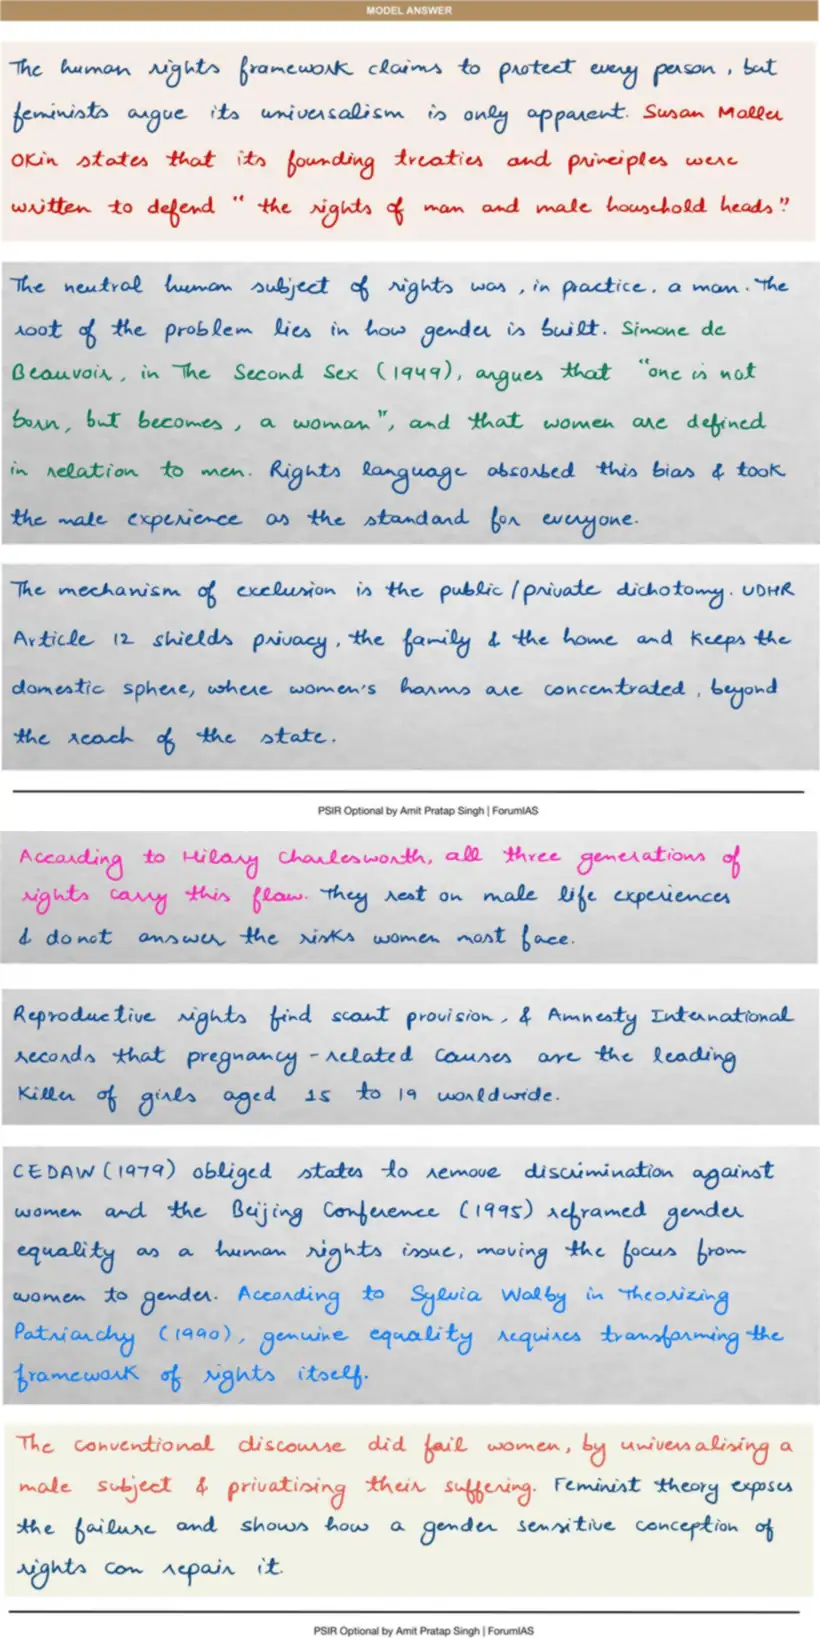 MODEL ANSWER
The human rights framework claims to protect every person, but
feminists argue its universalism is only apparent. Susan Moller
Okin states that its founding treaties and principles were
written to defend "the rights of man and male household heads".
The neutral human subject of rights was, in practice, a man. The
root of the problem lies in how gender is built. Simone de
Beauvoir, in The Second Sex (1949), argues that "one is not
born, but becomes, a woman", and that women are defined
in relation to men. Rights language absorbed this bias & took
the male experience as the standard for everyone.
The mechanism of exclusion is the public/private dichotomy. UDHR
Article 12 shields privacy, the family & the home and keeps the
domestic sphere, where women's harms are concentrated, beyond
the reach of the state.
PSIR Optional by Amit Pratap Singh | ForumIAS
According to Hilary Charlesworth, all three generations of
rights carry this flaw. They rest on male life experiences
& do not answer the risks women most face.
Reproductive rights find scant provision, & Amnesty International
records that pregnancy-related causes are the leading
killer of girls aged 15 to 19 worldwide.
CEDAW (1979) obliged states to remove discrimination against
women and the Beijing Conference (1995) reframed gender
equality as a human rights issue, moving the focus from
women to gender. According to Sylvia Walby in Theorizing
Patriarchy (1990), genuine equality requires transforming the
framework of rights itself.
The conventional discourse did fail women, by universalising a
male subject & privatising their suffering. Feminist theory exposes
the failure and shows how a gender sensitive conception of
rights can repair it.
PSIR Optional by Amit Pratap Singh | ForumIAS